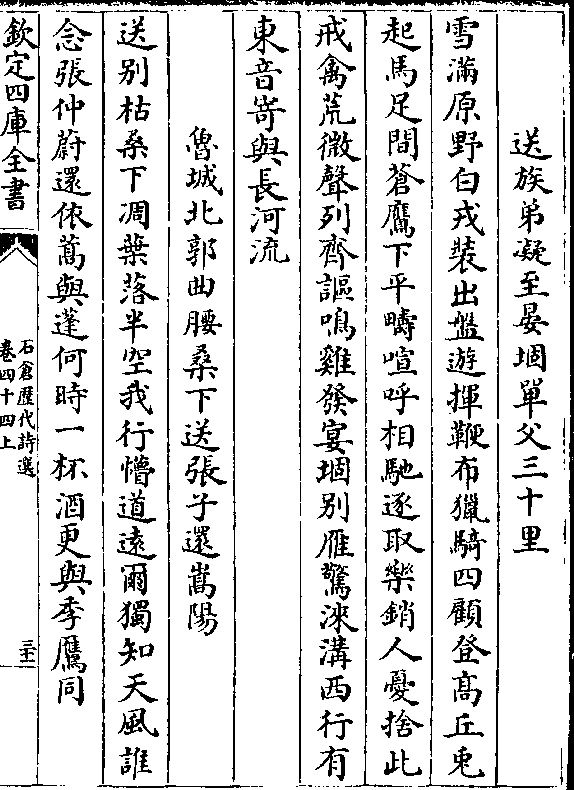 送族弟凝至晏堌單父三十里
雪滿原野白戎裝出盤遊揮鞭布獵騎四顧登髙丘兎
起馬足間蒼鷹下平疇喧呼相馳逐取樂銷人憂捨此
戒禽荒微聲列齊謳鳴雞發宴堌别雁驚淶溝西行有
東音寄與長河流
魯城北郭曲腰桑下送張子還嵩陽
送别枯桑下凋葉落半空我行懵道逺爾獨知天風誰
念張仲蔚還依蒿與蓬何時一杯酒更與季鷹同
欽定四庫全書
石倉歷代詩選
卷四十四上
三十二